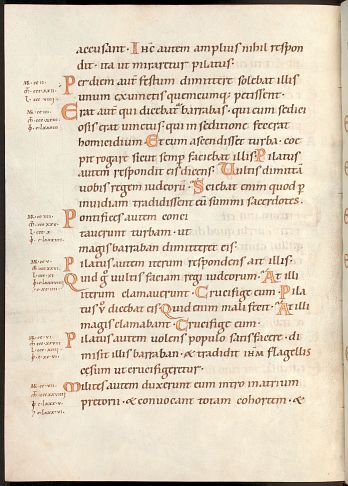 accusant · Ihc autem amplius nihil respon
dit · ita ut miraretur pilatus ·
Per diem aut festum dimittere solebat illis
unum ex uinctis quemcumq; petissent ·
Erat aut qui dicebat barrabas · qui cum sedici
osis erat uinctus · qui in seditione fecerat
homicidium · Et cum ascendisset turba · coe
pit rogare sicut semp faciebat illis · Pilatus
autem respondit eis dicens · Uultis dimittā
uobis regem iudeorū · Sciebat enim quod p
inuidiam tradidissent eū summi sacerdotes ·
Pontifices autem conci
tauerunt turbam · ut
magis barraban dimitteret eis ·
Pilatus autem iterum respondens ait illis ·
Quid g uultis faciam regi iudeorum · At illi
iterum clamauerunt · Crucifige eum · Pila
tus v dicebat eis · Quid enim mali fecit · At illi
magis clamabant · Crucifige eum ·
Pilatus autem uolens populo satisfacere · di
misit illis barraban · & tradidit ihm flagellis
cesum ut crucifigeretur ·
Milites autem duxerunt eum intro in atrium
pretorii · & conuocant totam cohortem · &